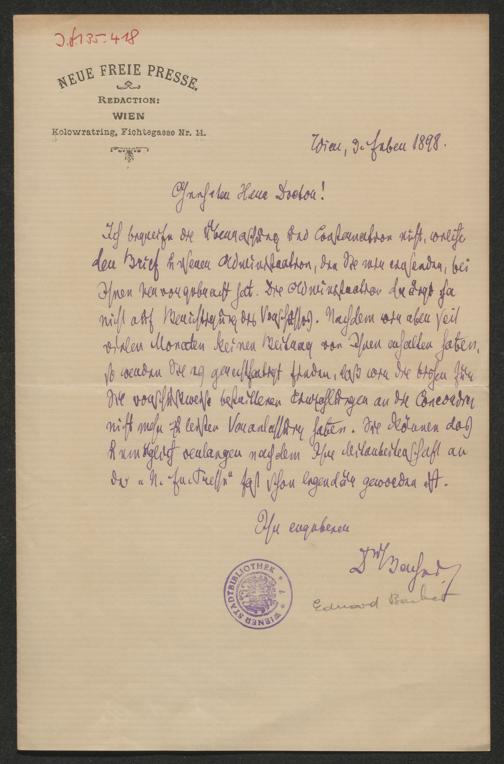 J.N. 135.418
NEUE FREIE PRESSE.
REDACTION:
WIEN
Kolowratring, Fichtegasse Nr. 11.
Wien, 3. Feber 1898.
Geehrter Herr Doctor!
Ich begreife die Überraschung und Consternation nicht, welche
der Brief unserer Administration, den Sie mir einsenden, bei
Ihnen hervorgebracht hat. Die Administration drängt ja
nicht auf Berichtigung des Vorschusses. Nachdem wir aber seit
vielen Monaten keinen Beitrag von Ihnen erhalten haben,
so werden Sie es gerechtfertigt finden, daß wir die bisher für
Sie vorschussweise bezahlten Einzahlungen an die Concordia
nicht mehr zu leisten Veranlassung haben. Sie können das
unmöglich verlangen nachdem Ihre Mitarbeiterschaft an
der "N. Fr. Presse" fast schon legendär geworden ist.
Ihr ergebener
Dr Bacher
Eduard Bacher
WIENER STADTBIBLIOTHEK